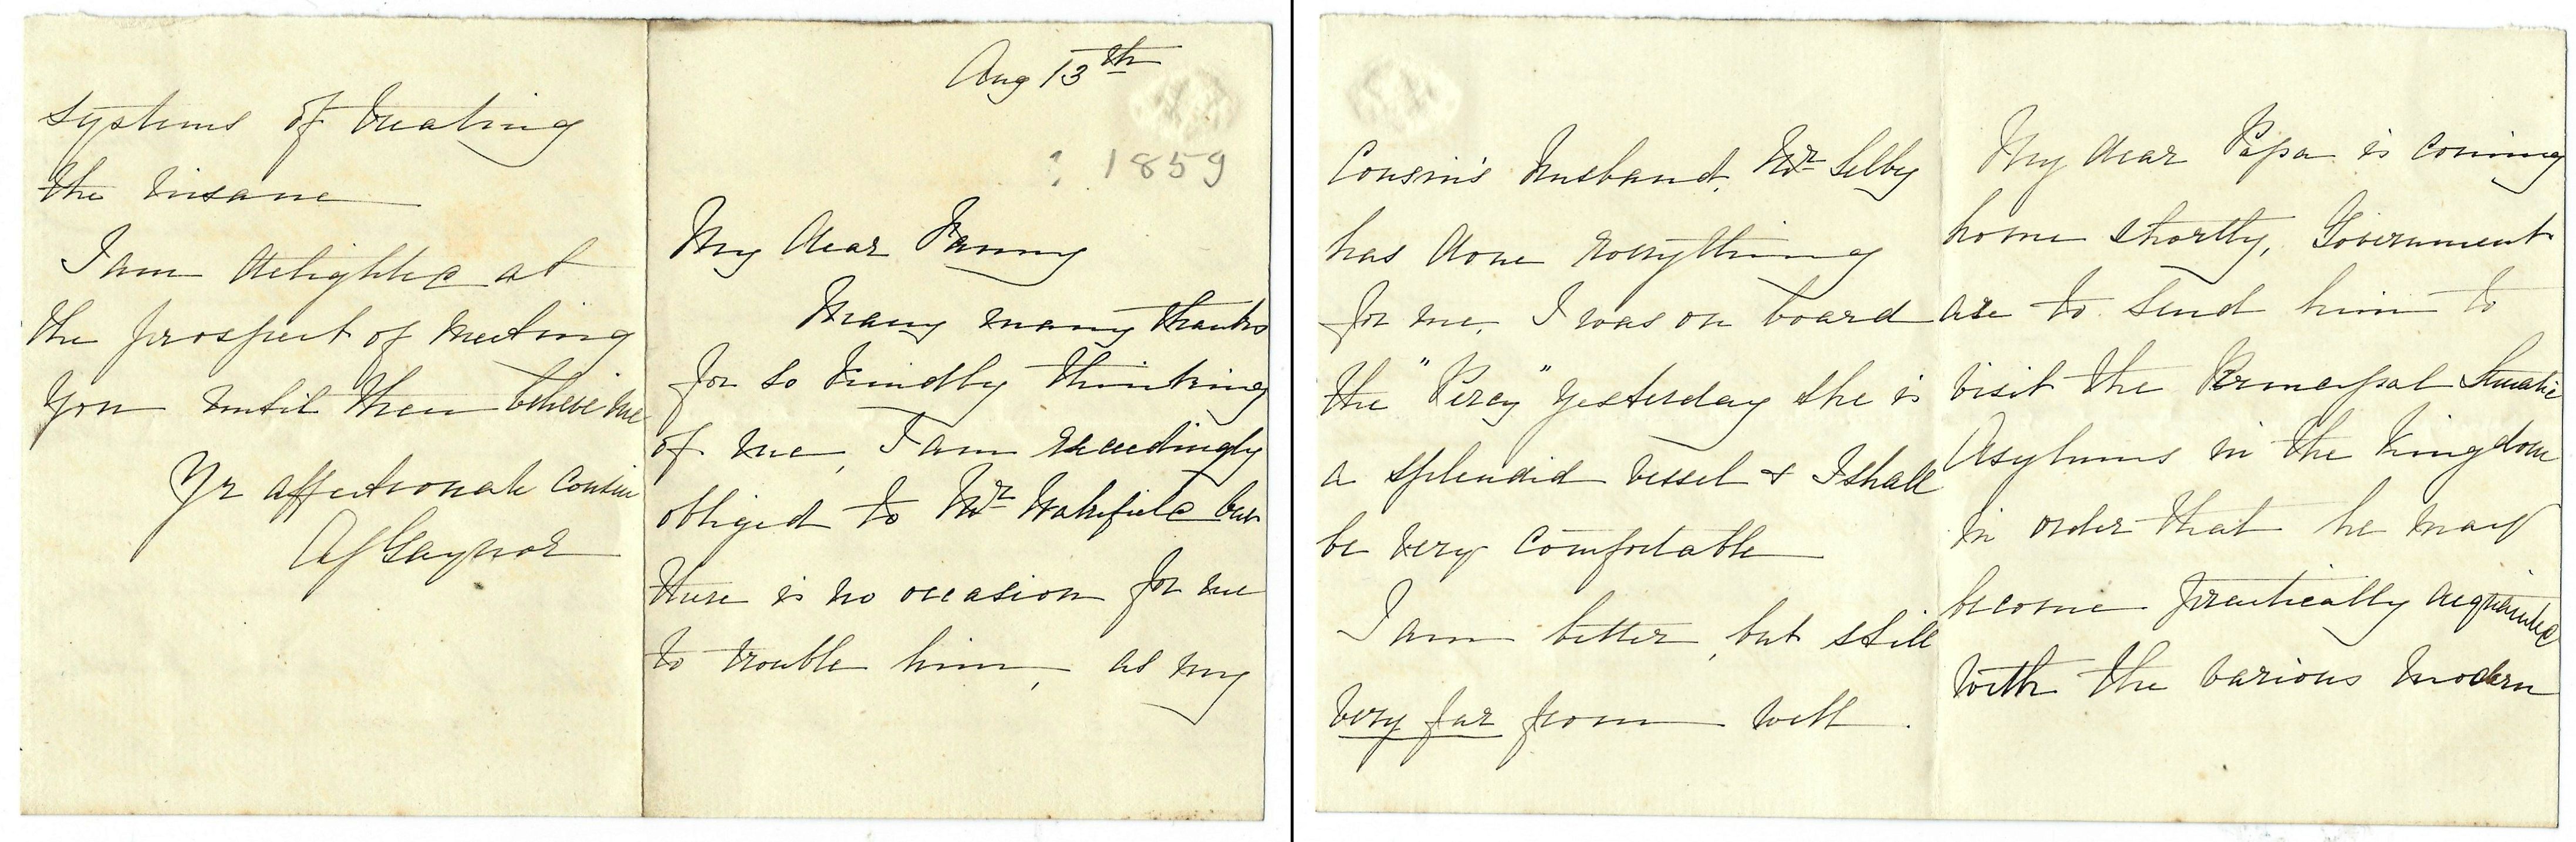 Aug 13th
? 1859
My dear Fanny
Many many thanks
for so kindly thinking
of me, I am exceedingly
obliged to Mr Wakefield but
there is no occasion for me
to trouble him, as my
Cousin's husband, Mr Selby
has done everything
for me. I was on board
the "Percy" yesterday she is
a splendid vessel & I shall
be very comfortable
I am better, but still
very far from well.
My dear Papa is coming
home shortly, Government
are to send him to
visit the Principal Lunatic
Asylums in the Kingdom
in order that he may
become practically acquainted
with the various modern
systems of treating
the insane
I am delighted at
the prospect of meeting
you until then believe me
Yr affectionate Cousin
Gaynor